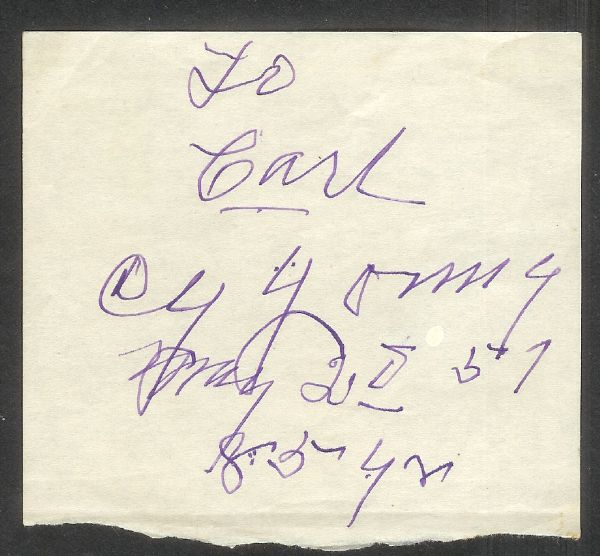 To
Carl
Cy Young
May 51
85 yr